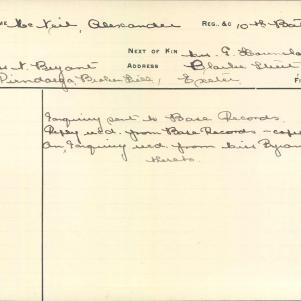 ME McNeil, Alexander REG. &C 10th Bat
NEXT OF KIN Mrs. E.
s. N. Bryant ADDRESS Clarke Street
Broken Hill, Exeter F
Enquiry sent to Base Records.
Reply recd. from Base Records – copy
An Enquiry recd. from Miss Bryan
thereto.